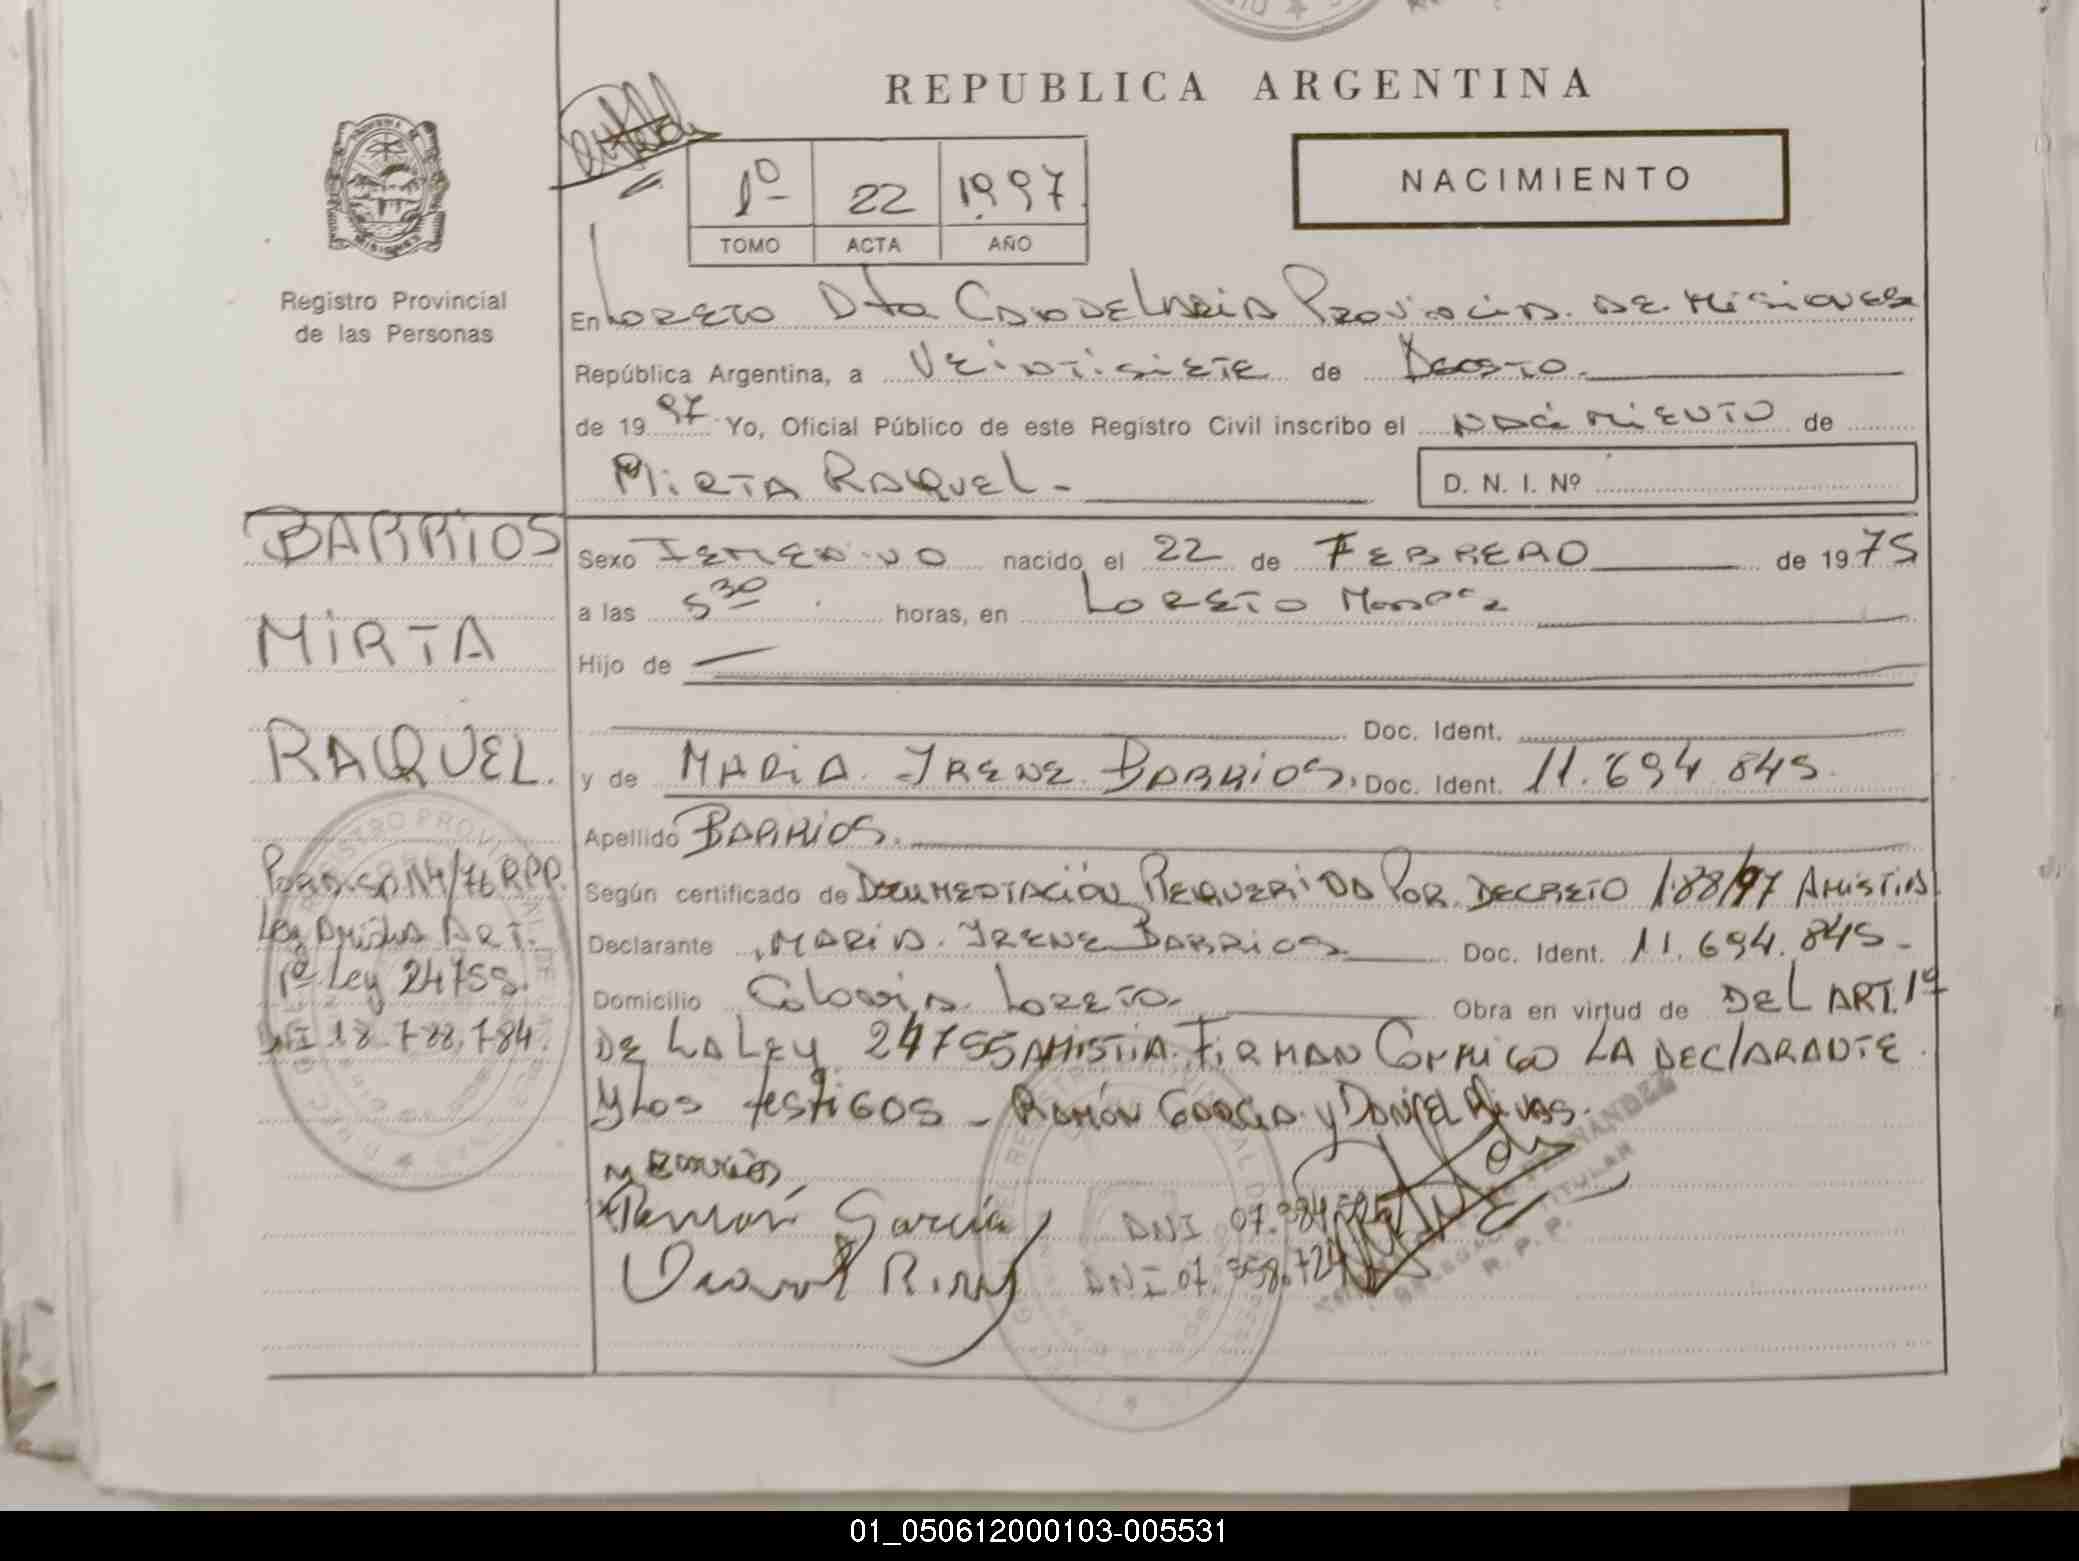 REPUBLICA ARGENTINA
NACIMIENTO
1º 22 1997
TOMO ACTA AÑO
Registro Provincial
de las Personas
En Loreto Dto Candelaria Provincia de Misiones
República Argentina, a Veintisiete de Agosto.
de 1997 Yo, Oficial Público de este Registro Civil inscribo el nacimiento de
MIRTA RAQUEL-
D. N. I. Nº
BARRIOS
MIRTA
RAQUEL.
Sexo Femenino nacido el 22 de FEBRERO de 1975
a las 5 30 horas, en LORETO
Hijo de
Doc. Ident.
y de MARIA IRENE BARRIOS. Doc. Ident. 11.694.845.
Apellido BARRIOS.
Según certificado de Documentación Requerida Por Decreto 188/97 Amistia
Declarante MARIA IRENE BARRIOS Doc. Ident. 11.694.845.-
Domicilio Colonia Loreto. Obra en virtud de DEL ART. 1º
DE LA LEY 24755 AMISTIA. FIRMAN CONMIGO LA DECLARANTE
Y LOS TESTIGOS - RAMÓN GARCIA y DANIEL RIVAS.
14/76 RPP.
Ley Amistia ART.
1º Ley 24755.
DNI 18.788.784.
M Barrios
Ramón García DNI 07.
DNI 07.
TITULAR
R. P. P.
01_050612000103-005531